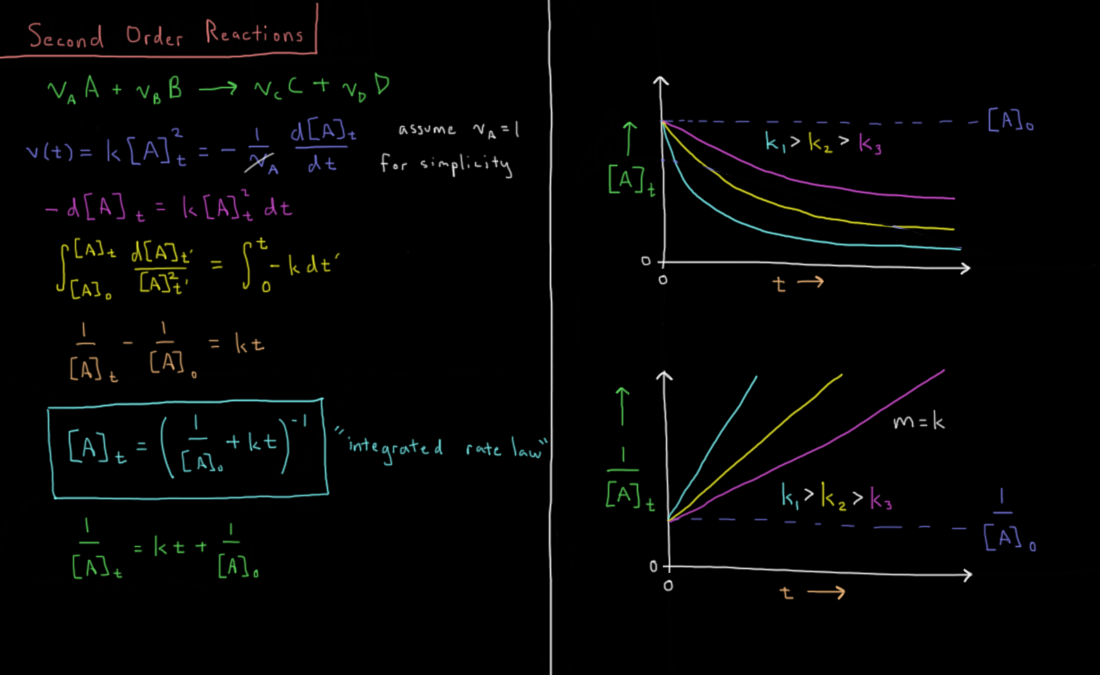 Second Order Reactions
ν_A A + ν_B B ⟶ ν_C C + ν_D D
v(t) = k[A]_t^2 = - 1/ν_A d[A]_t/dt
assume ν_A = 1
for simplicity
-d[A]_t = k[A]_t^2 dt
∫_{[A]_0}^{[A]_t} d[A]_t'/[A]_t'^2 = ∫_0^t -k dt'
1/[A]_t - 1/[A]_0 = kt
[A]_t = (1/[A]_0 + kt)^-1
"integrated rate law"
1/[A]_t = kt + 1/[A]_0
[A]_0
k_1 > k_2 > k_3
↑
[A]_t
0
0
t ⟶
↑
m = k
1/[A]_t
k_1 > k_2 > k_3
1/[A]_0
0
0
t ⟶